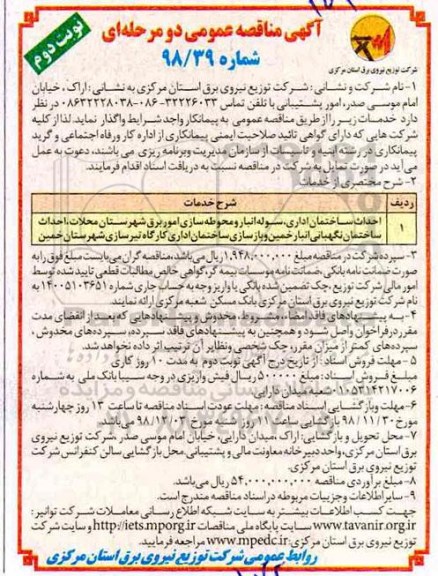 نوبت دوم
آگهی مناقصه عمومی دو مرحله‌ای
شماره ۹۸/۳۹
شرکت توزیع نیروی برق استان مرکزی
۱- نام شرکت و نشانی: شرکت توزیع نیروی برق استان مرکزی به نشانی: اراک، خیابان
امام موسی صدر، امور پشتیبانی با تلفن تماس ۳۲۲۲۶۰۳۳-۰۸۶ ۰۸۶۳۲۲۲۸۰۳۸ در نظر
دارد خدمات زیر را از طریق مناقصه عمومی به پیمانکار واجد شرایط واگذار نماید. لذا از کلیه
شرکت هایی که دارای گواهی تائید صلاحیت ایمنی پیمانکاری از اداره کار و رفاه اجتماعی و گرید
پیمانکاری در رشته ابنیه و تاسیسات از سازمان مدیریت و برنامه ریزی می باشند، دعوت به عمل
می آید در صورت تمایل به شرکت در مناقصه نسبت به دریافت اسناد اقدام فرمایند.
۲- شرح مختصری از خدمات
ردیف شرح خدمات
۱ احداث ساختمان اداری، سوله انبار و محوطه سازی امور برق شهرستان محلات، احداث
ساختمان نگهبانی انبار خمین و بازسازی ساختمان اداری کارگاه تیرسازی شهرستان خمین
۳- سپرده شرکت در مناقصه مبلغ ۱,۹۴۸,۰۰۰,۰۰۰ ریال می‌باشد، مناقصه گران می‌بایست مبلغ فوق را به
صورت ضمانت نامه بانکی، ضمانت نامه موسسات بیمه گر، گواهی خالص مطالبات قطعی تایید شده توسط
امور مالی شرکت توزیع، چک تضمین شده بانکی یا واریز وجه به حساب جاری شماره ۱۴۰۰۵۱۰۳۶۵۱ به
نام شرکت توزیع نیروی برق استان مرکزی بانک مسکن شعبه مرکزی ارائه نمایند.
۴- به پیشنهادهای فاقد امضاء، مشروط، مخدوش و پیشنهادهایی که بعد از انقضای مدت
مقرر در فراخوان واصل شود و همچنین به پیشنهادهای فاقد سپرده، سپرده‌های مخدوش،
سپرده‌های کمتر از میزان مقرر، چک شخصی و نظایر آن ترتیب اثر داده نخواهد شد.
۵- مهلت فروش اسناد: از تاریخ درج آگهی نوبت دوم به مدت ۱۰ روز کاری
مبلغ فروش اسناد: مبلغ ۵۰۰۰۰۰ ریال فیش واریزی در وجه سیبا بانک ملی به شماره
۰۱۰۵۳۱۴۲۱۷۰۰۶ شعبه میدان دارایی
۶- مهلت و بازگشایی اسناد مناقصه: مهلت عودت اسناد مناقصه تا ساعت ۱۳ روز چهارشنبه
مورخ ۹۸/۱۱/۳۰ بازگشایی ساعت ۱۱ روز شنبه مورخ ۹۸/۱۲/۰۳ می باشد
۷- محل تحویل و بازگشایی: اراک، میدان دارایی، خیابان امام موسی صدر، شرکت توزیع نیروی
برق استان مرکزی، واحد دبیرخانه معاونت مالی و پشتیبانی، محل بازگشایی سالن کنفرانس شرکت
توزیع نیروی برق استان مرکزی.
۸- مبلغ برآوردی مناقصه ۵۴,۰۰۰,۰۰۰,۰۰۰ ریال می‌باشد.
۹- سایر اطلاعات و جزییات مربوطه در اسناد مناقصه مندرج است.
جهت کسب اطلاعات بیشتر به سایت شبکه اطلاع رسانی معاملات شرکت توانیر:
www.tavanir.org.ir سایت پایگاه ملی مناقصات http://iets.mporg.ir و سایت شرکت
توزیع نیروی برق استان مرکزی www.mpedc.ir مراجعه فرمایید.
روابط عمومی شرکت توزیع نیروی برق استان مرکزی